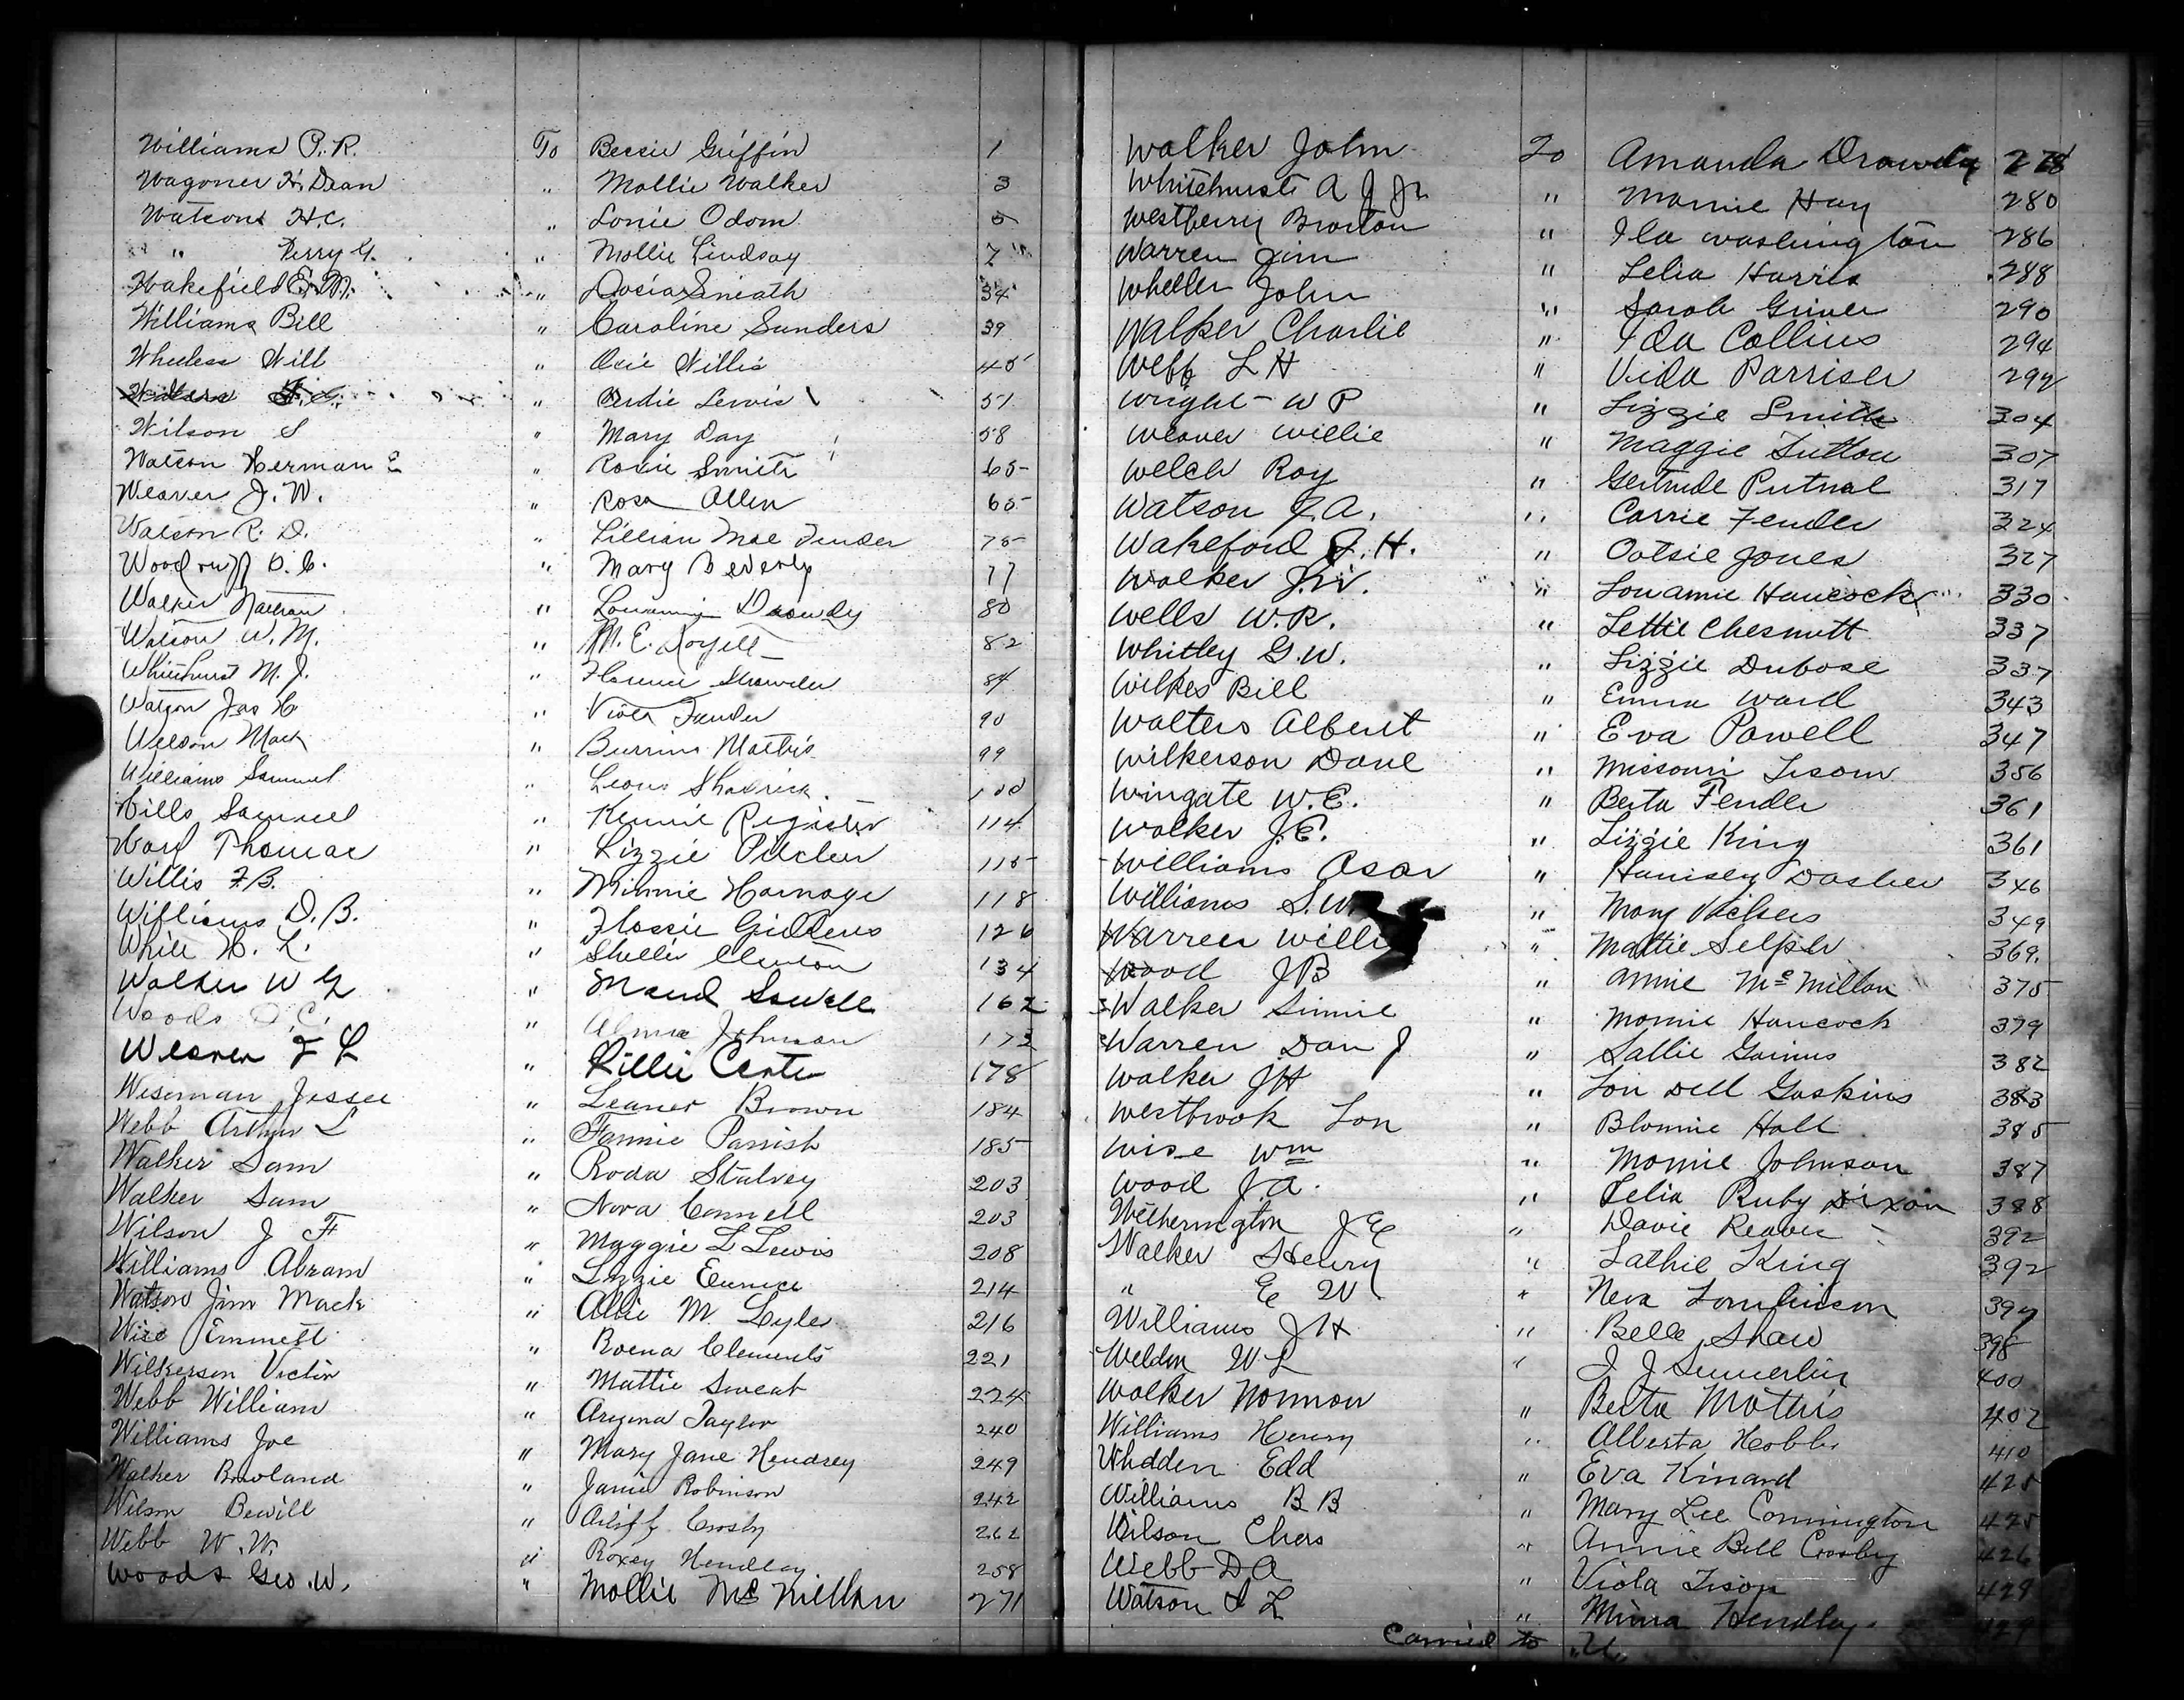 Williams P. R. To Bessie Griffin 1
Wagoner H. Dean " Mollie Walker 3
Watson H.C. " Lonie Odom 5
" Perry G. " Mollie Lindsay 7
Wakefield E. M. " Docia Sineath 34
Williams Bill " Caroline Sanders 39
Wheeless Will " Ocie Willis 45
" Ordie Lewis 51
Wilson S " Mary Day 58
Watson Herman E " Roxie Smith 65
Weaver J. W. " Rosa Allen 65
Watson R. D. " Lillian Mae Fender 75
Woodruff D. C. " Mary Beverly 77
Walker Nathan " Dowdy 80
Watson W. M. " M. E. 82
Whitehurst M. J. " Florence Strawder 84
Watson Jas H " Viola Fender 90
Wilson Mack " Burrine Mathis 99
Williams Samuel " Leona Shadrick 100
Wills Samuel " Kennie Register 114
Ward Thomas " Lizzie Pitcher 115
Willis F. B. " Minnie Harnage 118
Williams D. B. " Flossie Giddens 126
White H. L. " Shellie Clenton 134
Walker W G " Maud Sowell 162
Woods D. C. " Alma Johnson 173
Weaver F L " Lillie Carter 178
Weseman Jessee " Leaner Brown 184
Webb Arthur L " Fannie Parrish 185
Walker Sam " Roda Stalvey 203
Walker Sam " Nora Connell 203
Wilson J F " Maggie L Lewis 208
Williams Abram " Lizzie Eunice 214
Watson Jim Mack " Allie M. Lyles 216
Wise Emmett " Roena Clements 221
Wilkerson Victor " Mattie Sweat 224
Webb William " Arizona Taylor 240
Williams Joe " Mary Jane Hendrey 249
Walker Rowland " Janie Robinson 242
Wilson Bewill " Crosby 262
Webb W. W. " Roxey Hendley 258
Woods Geo. W. " Mollie McMillan 271
Walker John To Amanda Drawdy 278
Whitehurst A J Jr " Mamie Hay 280
Westberry Braxton " Ila Washington 286
Warren Jim " Lelia Harris 288
Wheller John " Sarah Griner 290
Walker Charlie " Ida Collins 294
Webb L H " Vida Parriser 297
Wright W P " Lizzie Smith 304
Weaver Willie " Maggie Sutton 307
Welch Roy " Gertrude Putnal 317
Watson J. A. " Carrie Fender 324
Wakeford J. H. " Ootsie Jones 327
Walker J. W. " Louamie Hancock 330
Wells W. R. " Lettie Chesnutt 337
Whitley G. W. " Lizzie Dubose 337
Wilkes Bill " Emma Ward 343
Walters Albert " Eva Powell 347
Wilkerson Dave " Missouri Tison 356
Wingate W. E. " Berta Fender 361
Walker J. E. " Lizzie King 361
Williams Asar " Dasher 346
Williams S. W. " Mary Vickers 349
Warren Willie " Mattie Selph 369
Wood J B " Annie McMillan 375
Walker Simie " Mamie Hancock 379
Warren Dan J " Sallie Gainus 382
Walker J H " Lou Dell Gaskins 383
Westbrook Lon " Blonnie Hall 385
Wise Wm " Mamie Johnson 387
Wood J. A. " Lelia Ruby Dixon 388
Witherington J E " Davie Reaves 392
Walker Henry " Lathie King 392
" E W " Neva Tomlinson 397
Williams J H " Belle Shaw 398
Weldon W L " J J Sumerlin 400
Walker Norman " Berta Mathis 402
Williams Henry " Alberta Hobbs 410
Whidden Edd " Eva Kinard 425
Williams B B " Mary Lee Connington 425
Wilson Chas " Annie Bell Crosby 426
Webb D A " Viola Tison 429
Watson I L " Minna Hendley 429
Carried to "U"